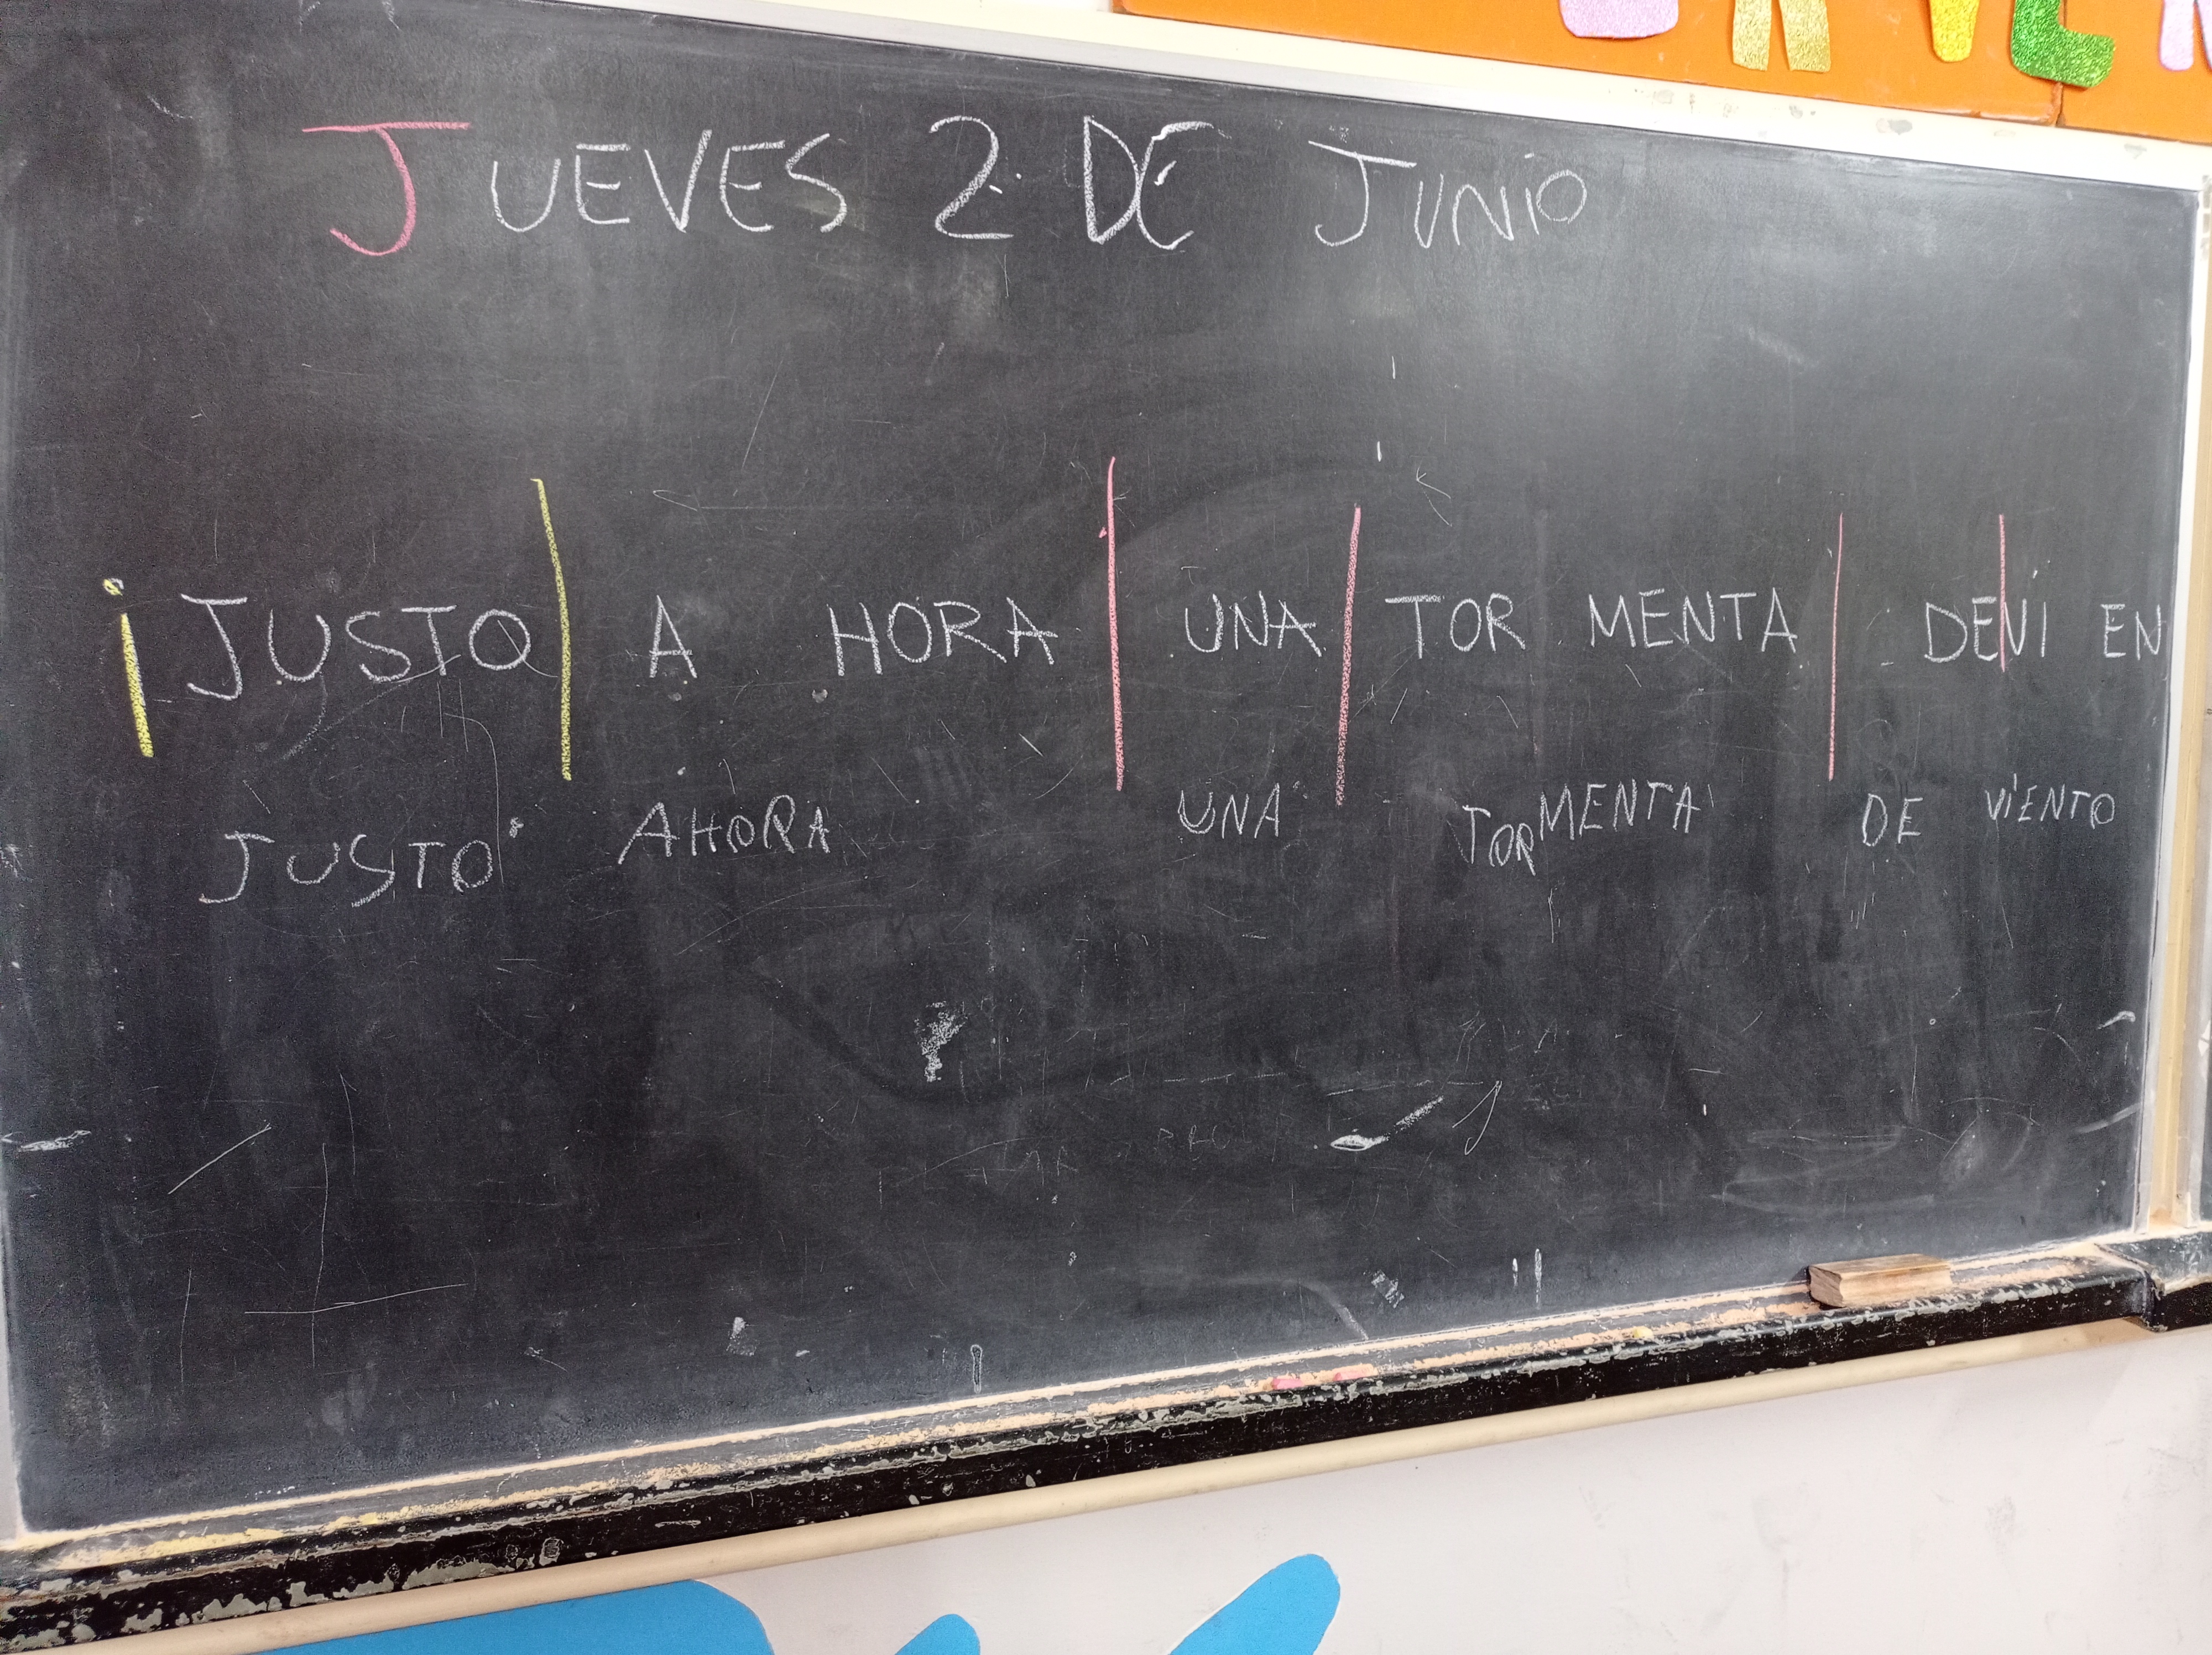 JUEVES 2 DE JUNIO
¡JUSTO A HORA UNA TOR MENTA DEVI EN
JUSTO AHORA UNA TORMENTA DE VIENTO